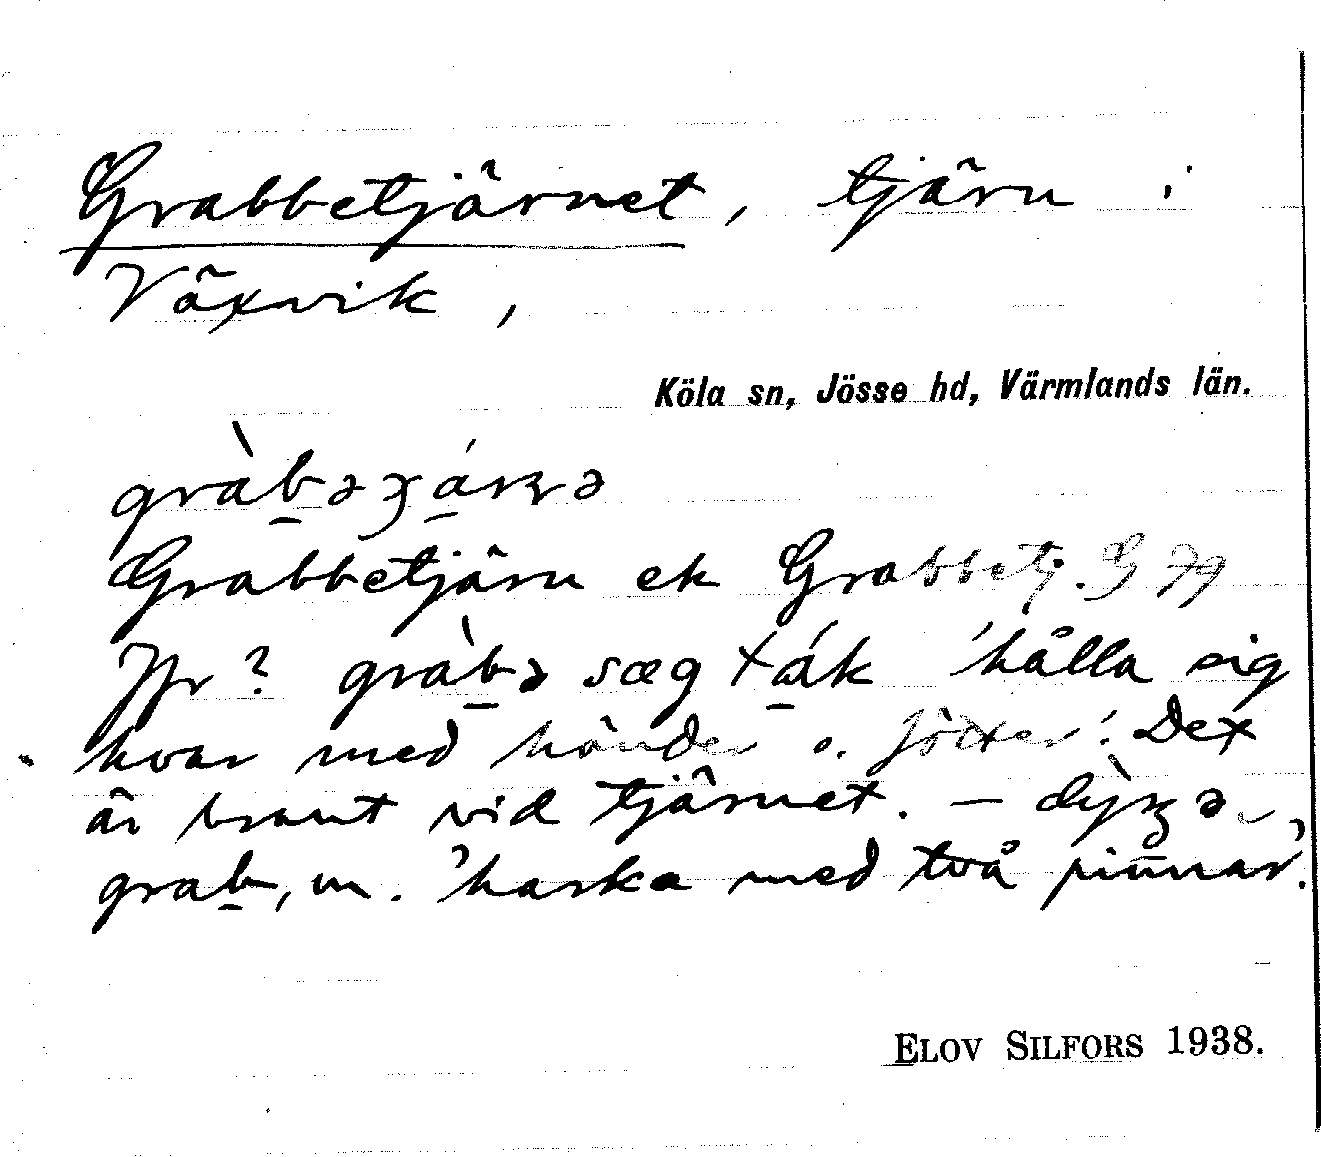 Grabbetjärnet, tjärn i
Växvik,
Köla sn, Jösse hd, Värmlands län.
Grabbetjärn ek Grabbetj. G 79
Jfr? gràbə sæg ták 'hålla sig
kvar med händer o. fötter'. Det
är brant vid tjärnet. —
grab, m. 'harka med två pinnar'.
ELOV SILFORS 1938.